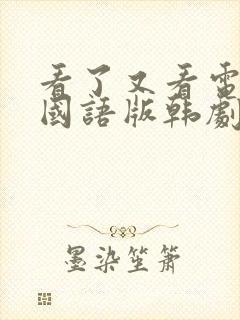 看了又看電
國語版韩劇
墨染笙箫